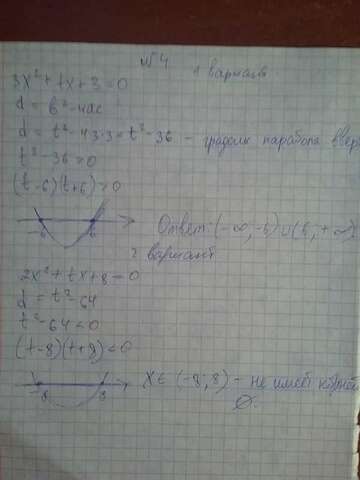 №4 1 вариант
3x² + tx + 3 = 0
d = b² - 4ac
d = t² - 4·3·3 = t² - 36 - парабола ввер
t² - 36 = 0
(t - 6)(t + 6) > 0
-6 6 Ответ: (-∞; -6) ∪ (6; +∞)
2 вариант
2x² + tx + 8 = 0
d = t² - 64
t² - 64 < 0
(t - 8)(t + 8) < 0
-8 8 X ∈ (-8; 8) - не имеет корней
∅.